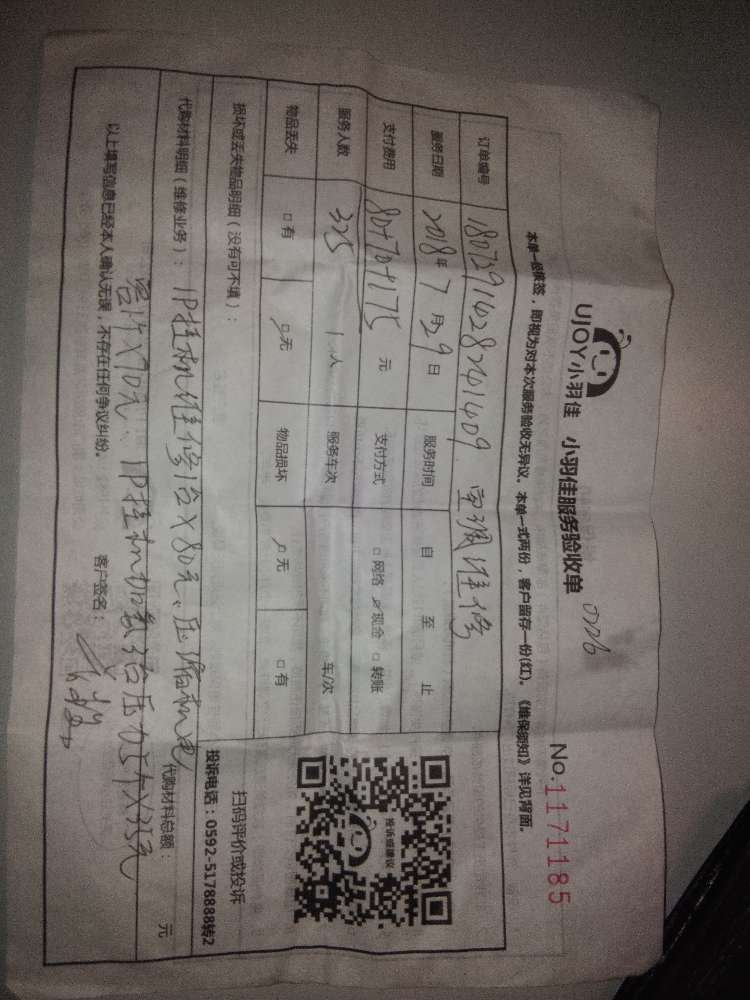 UJOY小羽佳 小羽佳服务验收单 0226
No.1171185
本单一经保签,即视为对本次服务验收无异议。本单一式两份,客户留存一份(红)。《维保须知》详见背面。
订单编号 180729142824 1409 空调维修
服务日期 2018年7月29日 服务时间 自 至 止
支付费用 80+70+175元 支付方式 □网络 ☑现金 □转账
325
服务人数 1人 服务车次 车/次
物品丢失 □有 ☑无 物品损坏 ☑无 □有
损坏或丢失物品明细(没有可不填):
扫码评价或投诉
投诉电话:0592-5178888转2
投诉或建议
代购材料明细(维修业务): 1P挂机维修1台X80元、压缩机电
代购材料总额: 元
容1个X70元、1P挂机加氟1台压力5个X35元
以上填写信息已经本人确认无误,不存在任何争议纠纷。 客户签名: